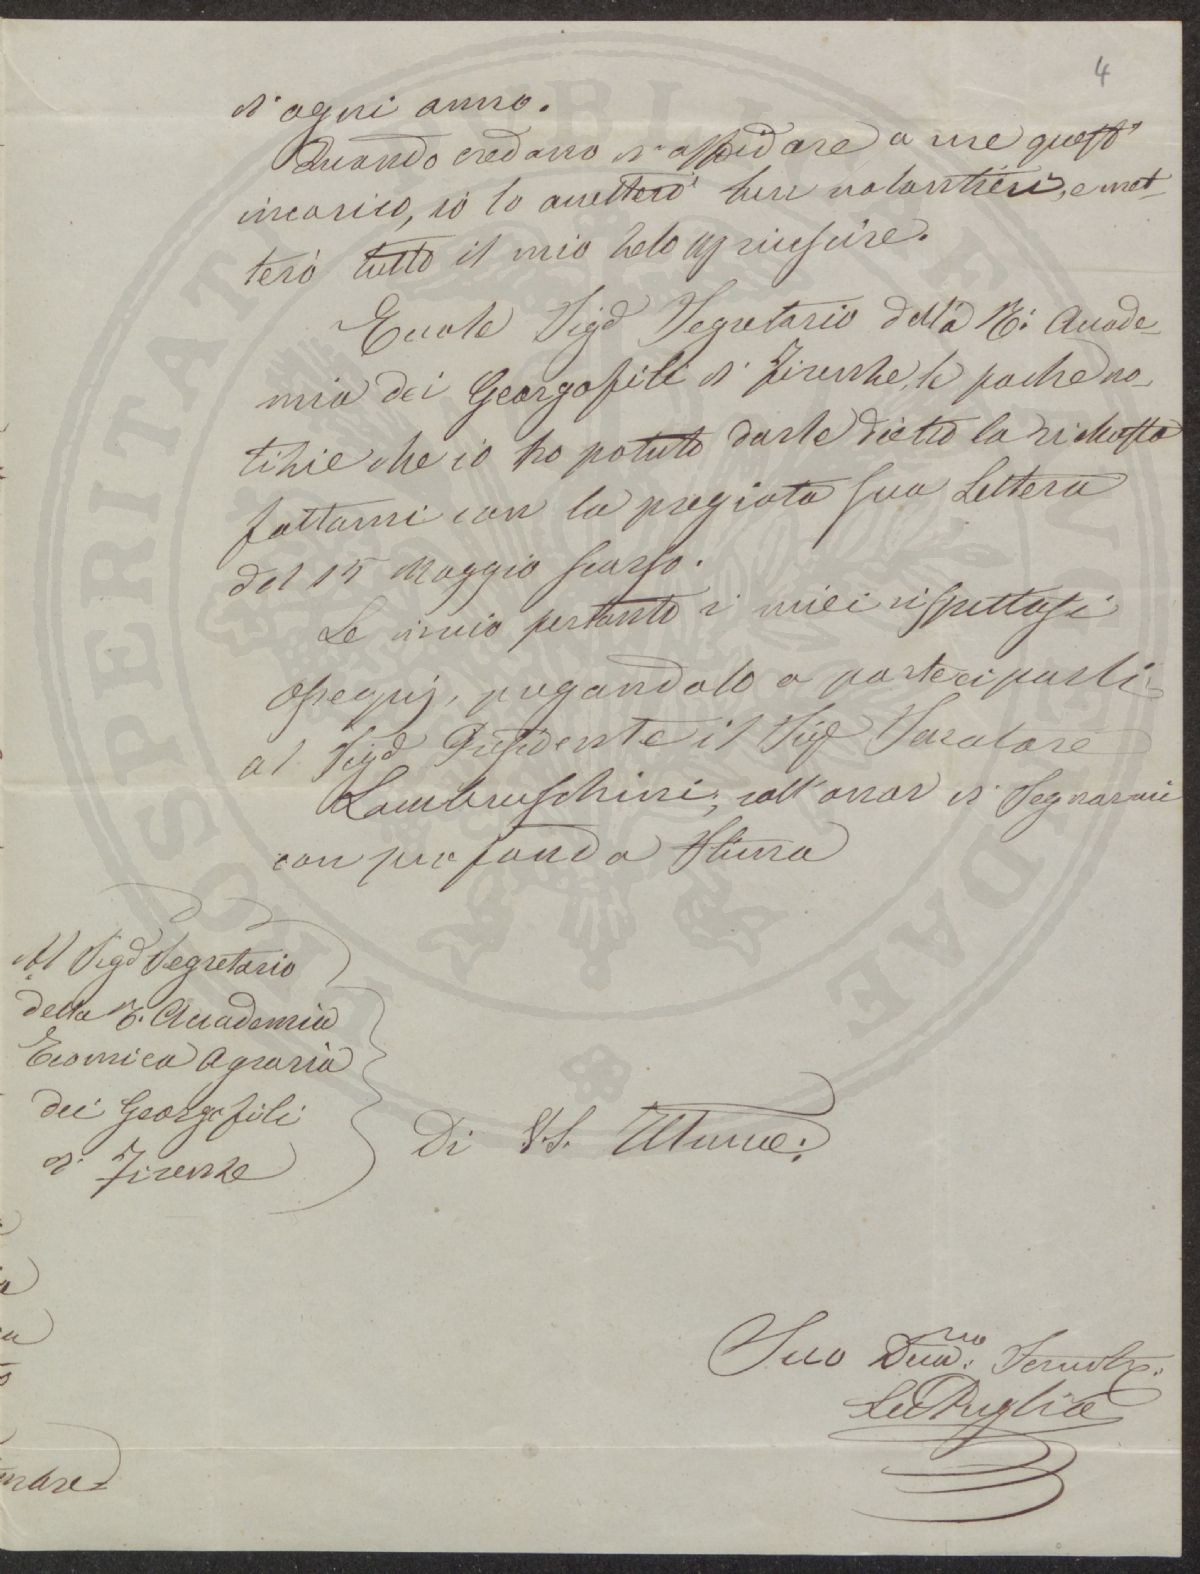 4
d'ogni anno.
Quando credano d'affidare a me questo
incarico, io lo accetterò ben volontieri, e met-
terò tutto il mio zelo a riuscire.
Eccole Sigr Segretario della R. Accade-
mia dei Georgofili di Firenze, le poche no-
tizie che io ho potuto darle dietro la richiesta
fattami con la pregiata sua Lettera
del 15 Maggio scorso.
Le invio pertanto i miei rispettosi
ossequj, pregandolo a parteciparli
al Sigr Presidente il Sigr Senatore
Lambruschini, coll'onor di segnarmi
con profonda Stima
Al Sigr Segretario
della R. Accademia
Economica Agraria
dei Georgofili
di Firenze
Di V.S. Illma:
Suo Devmo:
PROSPERITATI PUBLICAE AUGENDAE